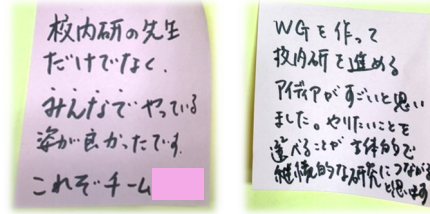 校内研の先生
だけでなく、
みんなでやっている
姿が良かったです。
これぞチーム
WGを作って
校内研を進める
アイディアがすごいと思い
ました。やりたいことを
選べることが主体的で
継続的な研究につながる
と思います